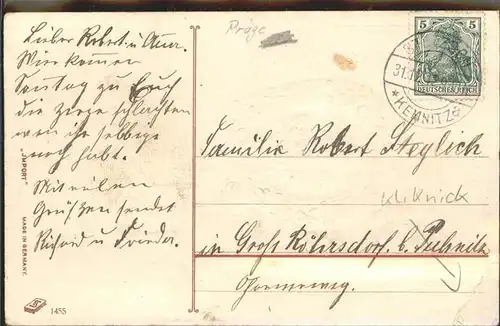 Präge
Lieber Robert u Anna.
Wir kommen
Sontag zu Euch
die ziege schlachten
wen ihr selbige
noch habt.
Mit vielen
Grüßen sendet
Richard u Frieda.
5 5
DEUTSCHES REICH
31.
* KEMNITZ
Familie Robert Steglich
Kl. Knick
in Groß Röhrsdorf b. Pulsnitz
"IMPORT"
MADE IN GERMANY.
1455